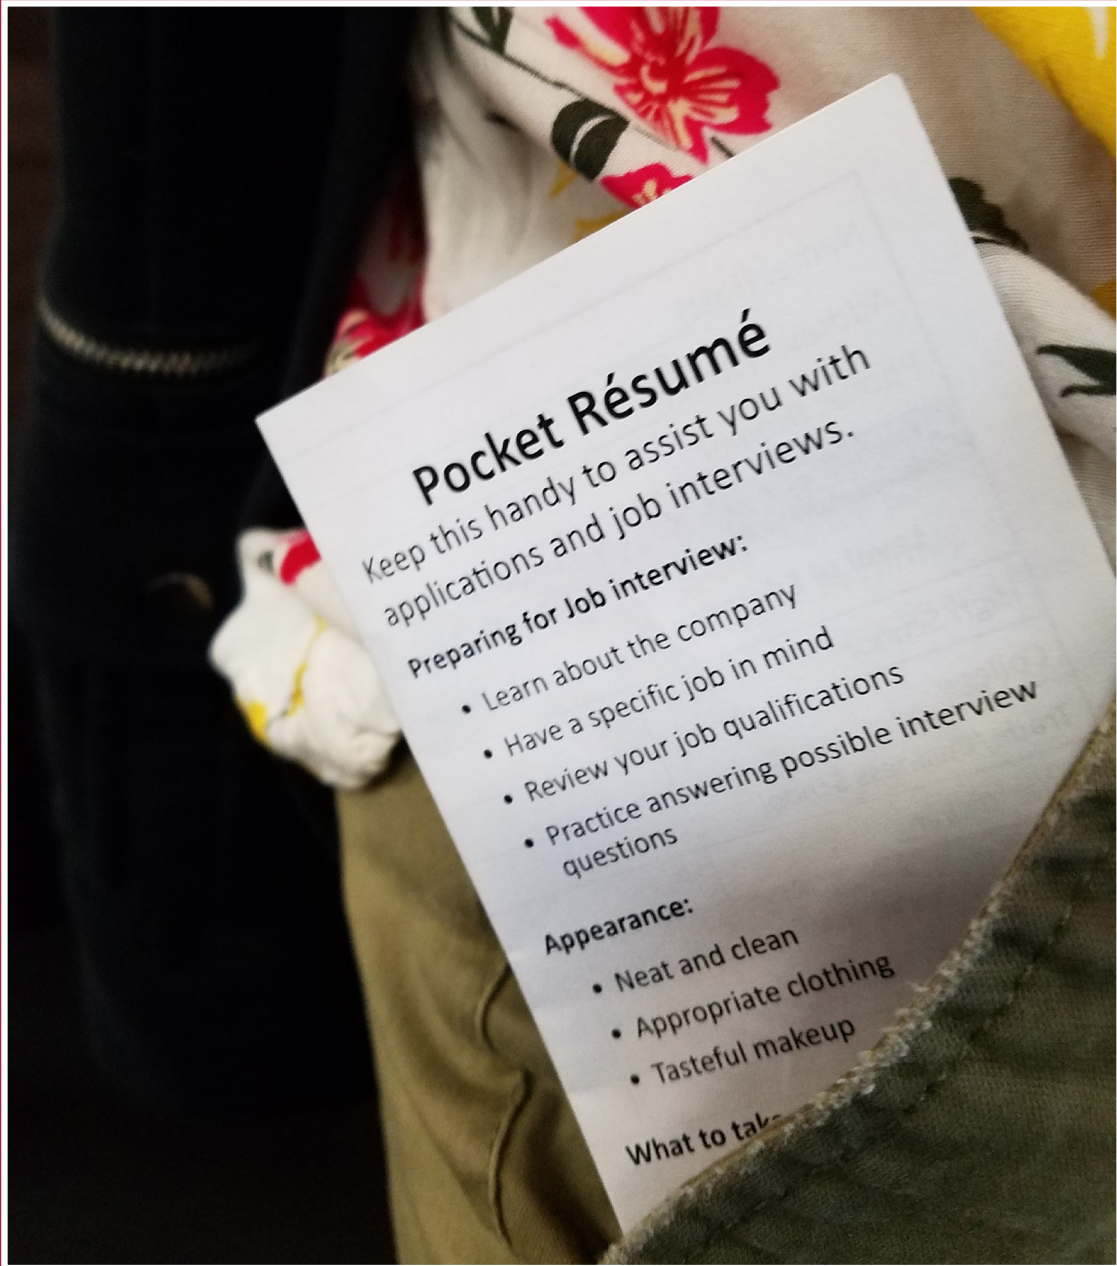 Pocket Résumé
Keep this handy to assist you with
applications and job interviews.
Preparing for Job interview:
• Learn about the company
• Have a specific job in mind
• Review your job qualifications
• Practice answering possible interview
questions
Appearance:
• Neat and clean
• Appropriate clothing
• Tasteful makeup
What to take